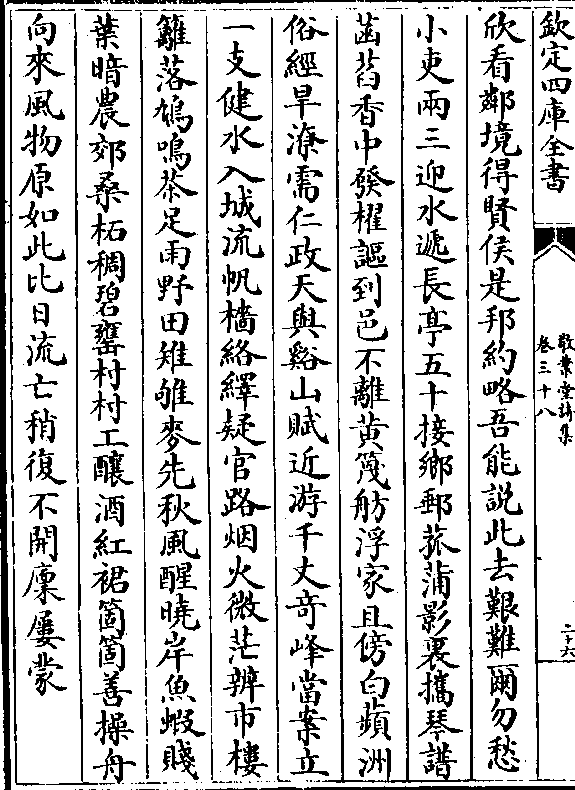 欽定四庫全書
敬業堂詩集
卷三十八
二十六
欣看鄰境得賢侯是邦約略吾能説此去艱難爾勿愁
小吏兩三迎水遞長亭五十接鄉郵菰蒲影裏攜琴譜
菡萏香中發櫂謳到邑不離黄篾舫浮家且傍白蘋洲
俗經旱潦需仁政天與谿山賦近游千丈竒峰當案立
一支健水入城流帆檣絡繹疑官路烟火微茫辨市樓
籬落鳩鳴茶足雨野田雉雊麥先秋風醒曉岸魚蝦賤
葉暗農郊桑柘稠碧甕村村工釀酒紅裙箇箇善操舟
向來風物原如此比日流亡稍復不開廩屢蒙